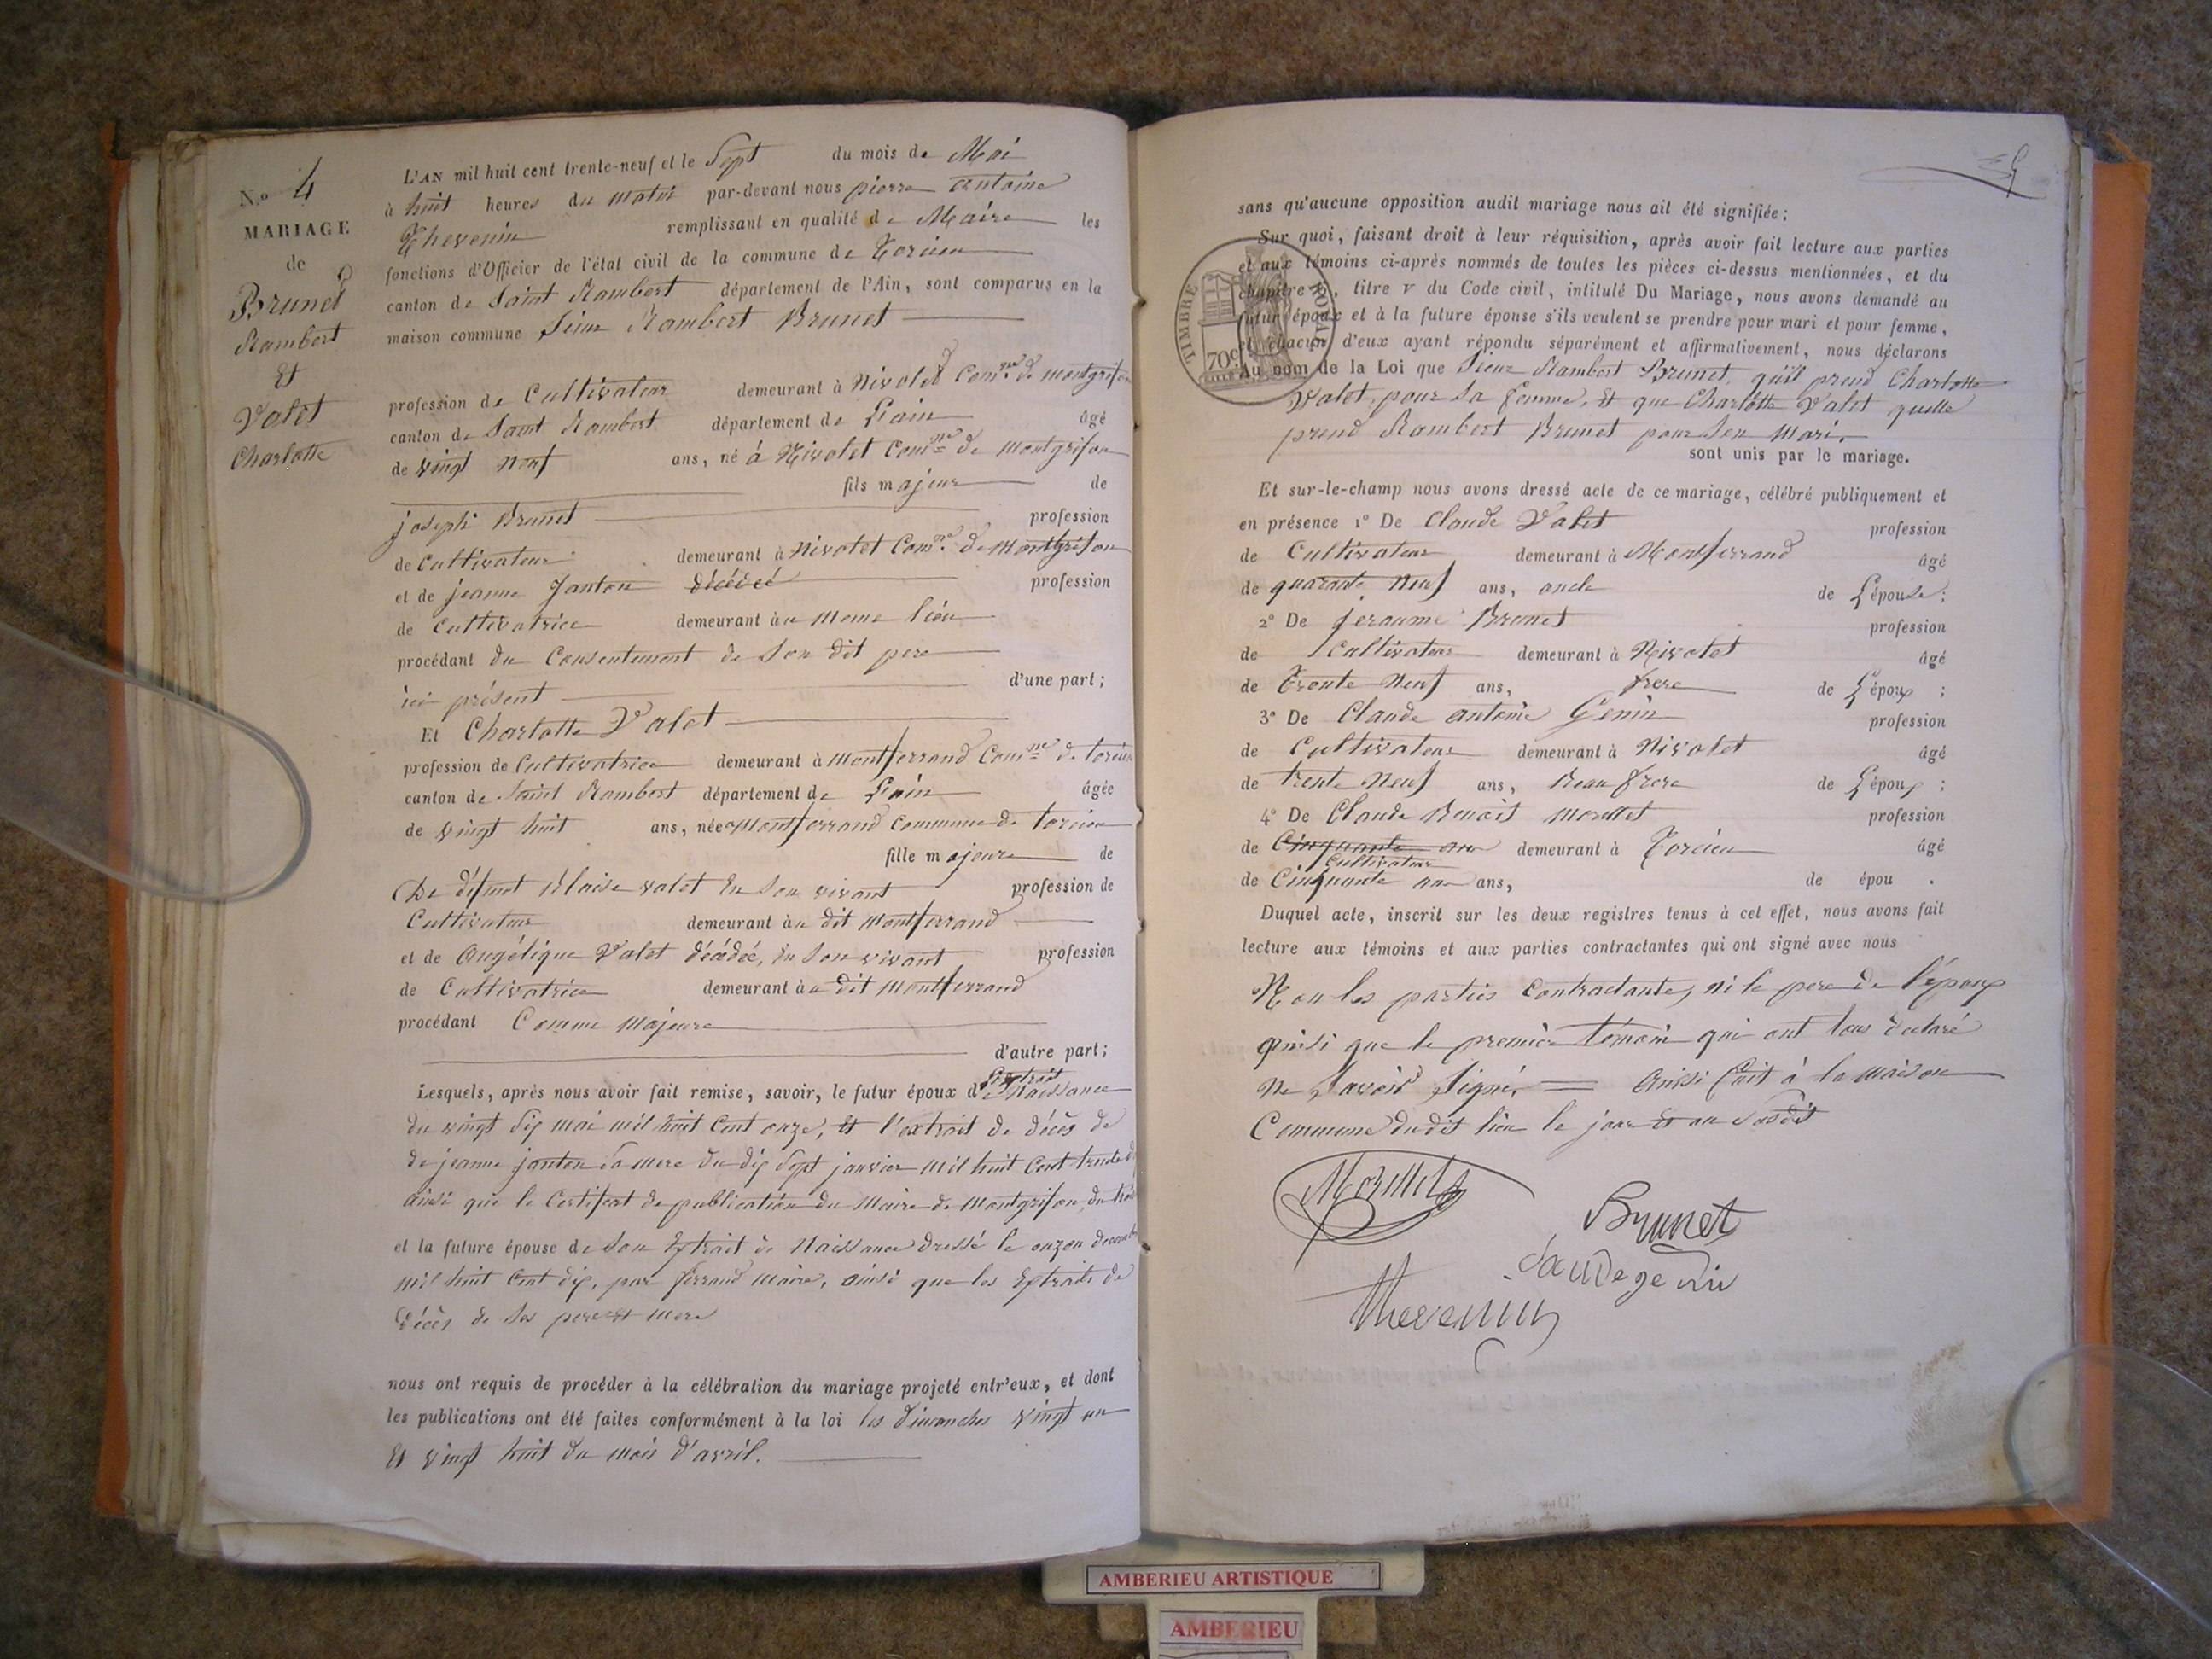 N.º 4
MARIAGE
de
Brunet
Rambert
Et
Valet
Charlotte
L'AN mil huit cent trente-neuf et le Sept du mois de Mai
à huit heures du matin par-devant nous pierre antoine
Thevenin remplissant en qualité de Maire les
fonctions d'Officier de l'état civil de la commune de Torcieu
canton de Saint Rambert département de l'Ain, sont comparus en la
maison commune Sieur Rambert Brunet
profession de Cultivateur demeurant à Nivolet Com.ne de montgrifon
canton de Saint Rambert département de L'ain âgé
de vingt neuf ans, né à Nivolet Com.ne de montgrifon
fils majeur de
joseph Brunet profession
de Cultivateur demeurant à Nivolet Com.ne de Montgrifon
et de jeanne Janton décédeé profession
de Cultivatrice demeurant au meme lieu
procédant du Consentement de son dit pere
ici présent d'une part;
Et Charlotte Valet
profession de Cultivatrice demeurant à Montferrand Com.ne de torcieu
canton de Saint Rambert département de L'ain âgée
de vingt huit ans, née a Montferrand Commune de torcieu
fille majeure de
De défunt Blaise valet En son vivant profession de
Cultivateur demeurant au dit Montferrand
et de Angélique Valet décédée, En son vivant profession
de Cultivatrice demeurant au dit Montferrand
procédant Comme Majeure
d'autre part;
Lesquels, après nous avoir fait remise, savoir, le futur époux de L'extrait Naissance
du vingt dix mai mil huit Cent onze, Et l'extrait de décès de
de jeanne janton sa mere du dix sept janvier mil huit Cent trente
ainsi que le Certificat de publication du Maire de Montgrifon, du
et la future épouse de son Extrait de Naissance dressé le onze decemb
mil huit Cent dix, par ferrand maire, ainsi que les Extraits de
décès de ses pere et mere
nous ont requis de procéder à la célébration du mariage projeté entr'eux, et dont
les publications ont été faites conformément à la loi les dimanches vingt un
Et vingt huit du mois d'avril.
sans qu'aucune opposition audit mariage nous ait été signifiée;
Sur quoi, faisant droit à leur réquisition, après avoir fait lecture aux parties
et aux témoins ci-après nommés de toutes les pièces ci-dessus mentionnées, et du
chapitre, titre v du Code civil, intitulé Du Mariage, nous avons demandé au
futur époux et à la future épouse s'ils veulent se prendre pour mari et pour femme,
et chacun d'eux ayant répondu séparément et affirmativement, nous déclarons
Au nom de la Loi que Sieur Rambert Brunet, qu'il prend Charlotte
Valet, pour sa femme, Et que Charlotte Valet quelle
prend Rambert Brunet pour son mari.
sont unis par le mariage.
TIMBRE ROYAL
70c
Et sur-le-champ nous avons dressé acte de ce mariage, célébré publiquement et
en présence 1º De Claude Valet profession
de Cultivateur demeurant à Montferrand âgé
de quarante neuf ans, oncle de L'épouse;
2º De jeroume Brunet profession
de Cultivateur demeurant à Nivolet âgé
de Trente neuf ans, frere de L'époux;
3º De Claude antoine Genin profession
de Cultivateur demeurant à Nivolet âgé
de trente neuf ans, Beau frere de L'époux;
4º De Claude Benoit Morellet profession
de Cinquante ans demeurant à Torcieu âgé
Cultivateur
de Cinquante un ans, de épou .
Duquel acte, inscrit sur les deux registres tenus à cet effet, nous avons fait
lecture aux témoins et aux parties contractantes qui ont signé avec nous
Non les parties Contractantes, ni le pere de l'époux
ainsi que le premier témoin qui ont tous déclaré
ne savoir signé, = ainsi fait à la maison
Commune dudit lieu le jour Et an susdit
Morellet
Brunet
Claude genin
Thevenin
AMBERIEU ARTISTIQUE
AMBERIEU